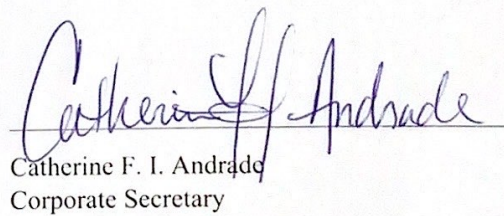 Catherine F I Andrade
Catherine F. I. Andrade
Corporate Secretary